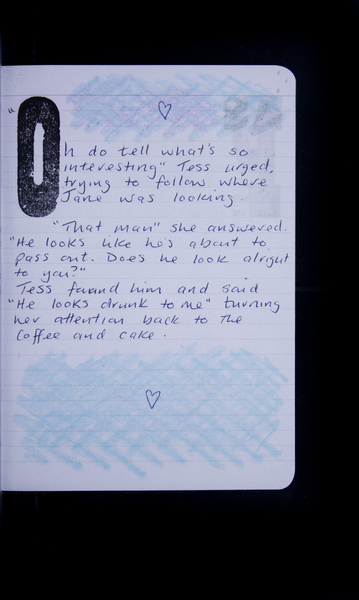 "Oh do tell what's so
interesting" Tess urged,
trying to follow where
Jane was looking.
"That man" she answered.
"He looks like he's about to
pass out. Does he look alright
to you?"
Tess found him and said
"He looks drunk to me" turning
her attention back to the
coffee and cake.